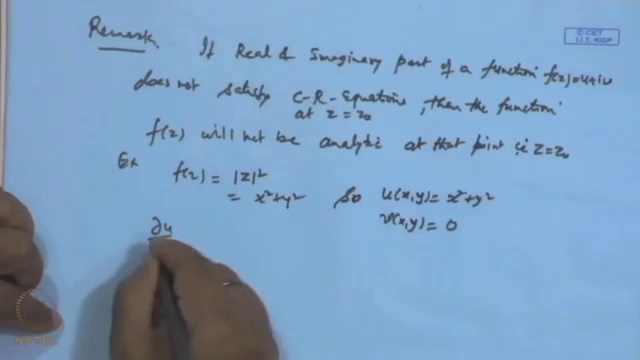 © CET
I.I.T. KGP
Remark If Real & Imaginary part of a function f(z)=u+iv
does not satisfy C-R-Equations, then the function
at z=z₀
f(z) will not be analytic at that point i.e z=z₀
Ex f(z) = |z|²
= x²+y² So u(x,y)= x²+y²
v(x,y)= 0
∂u
NPTEL